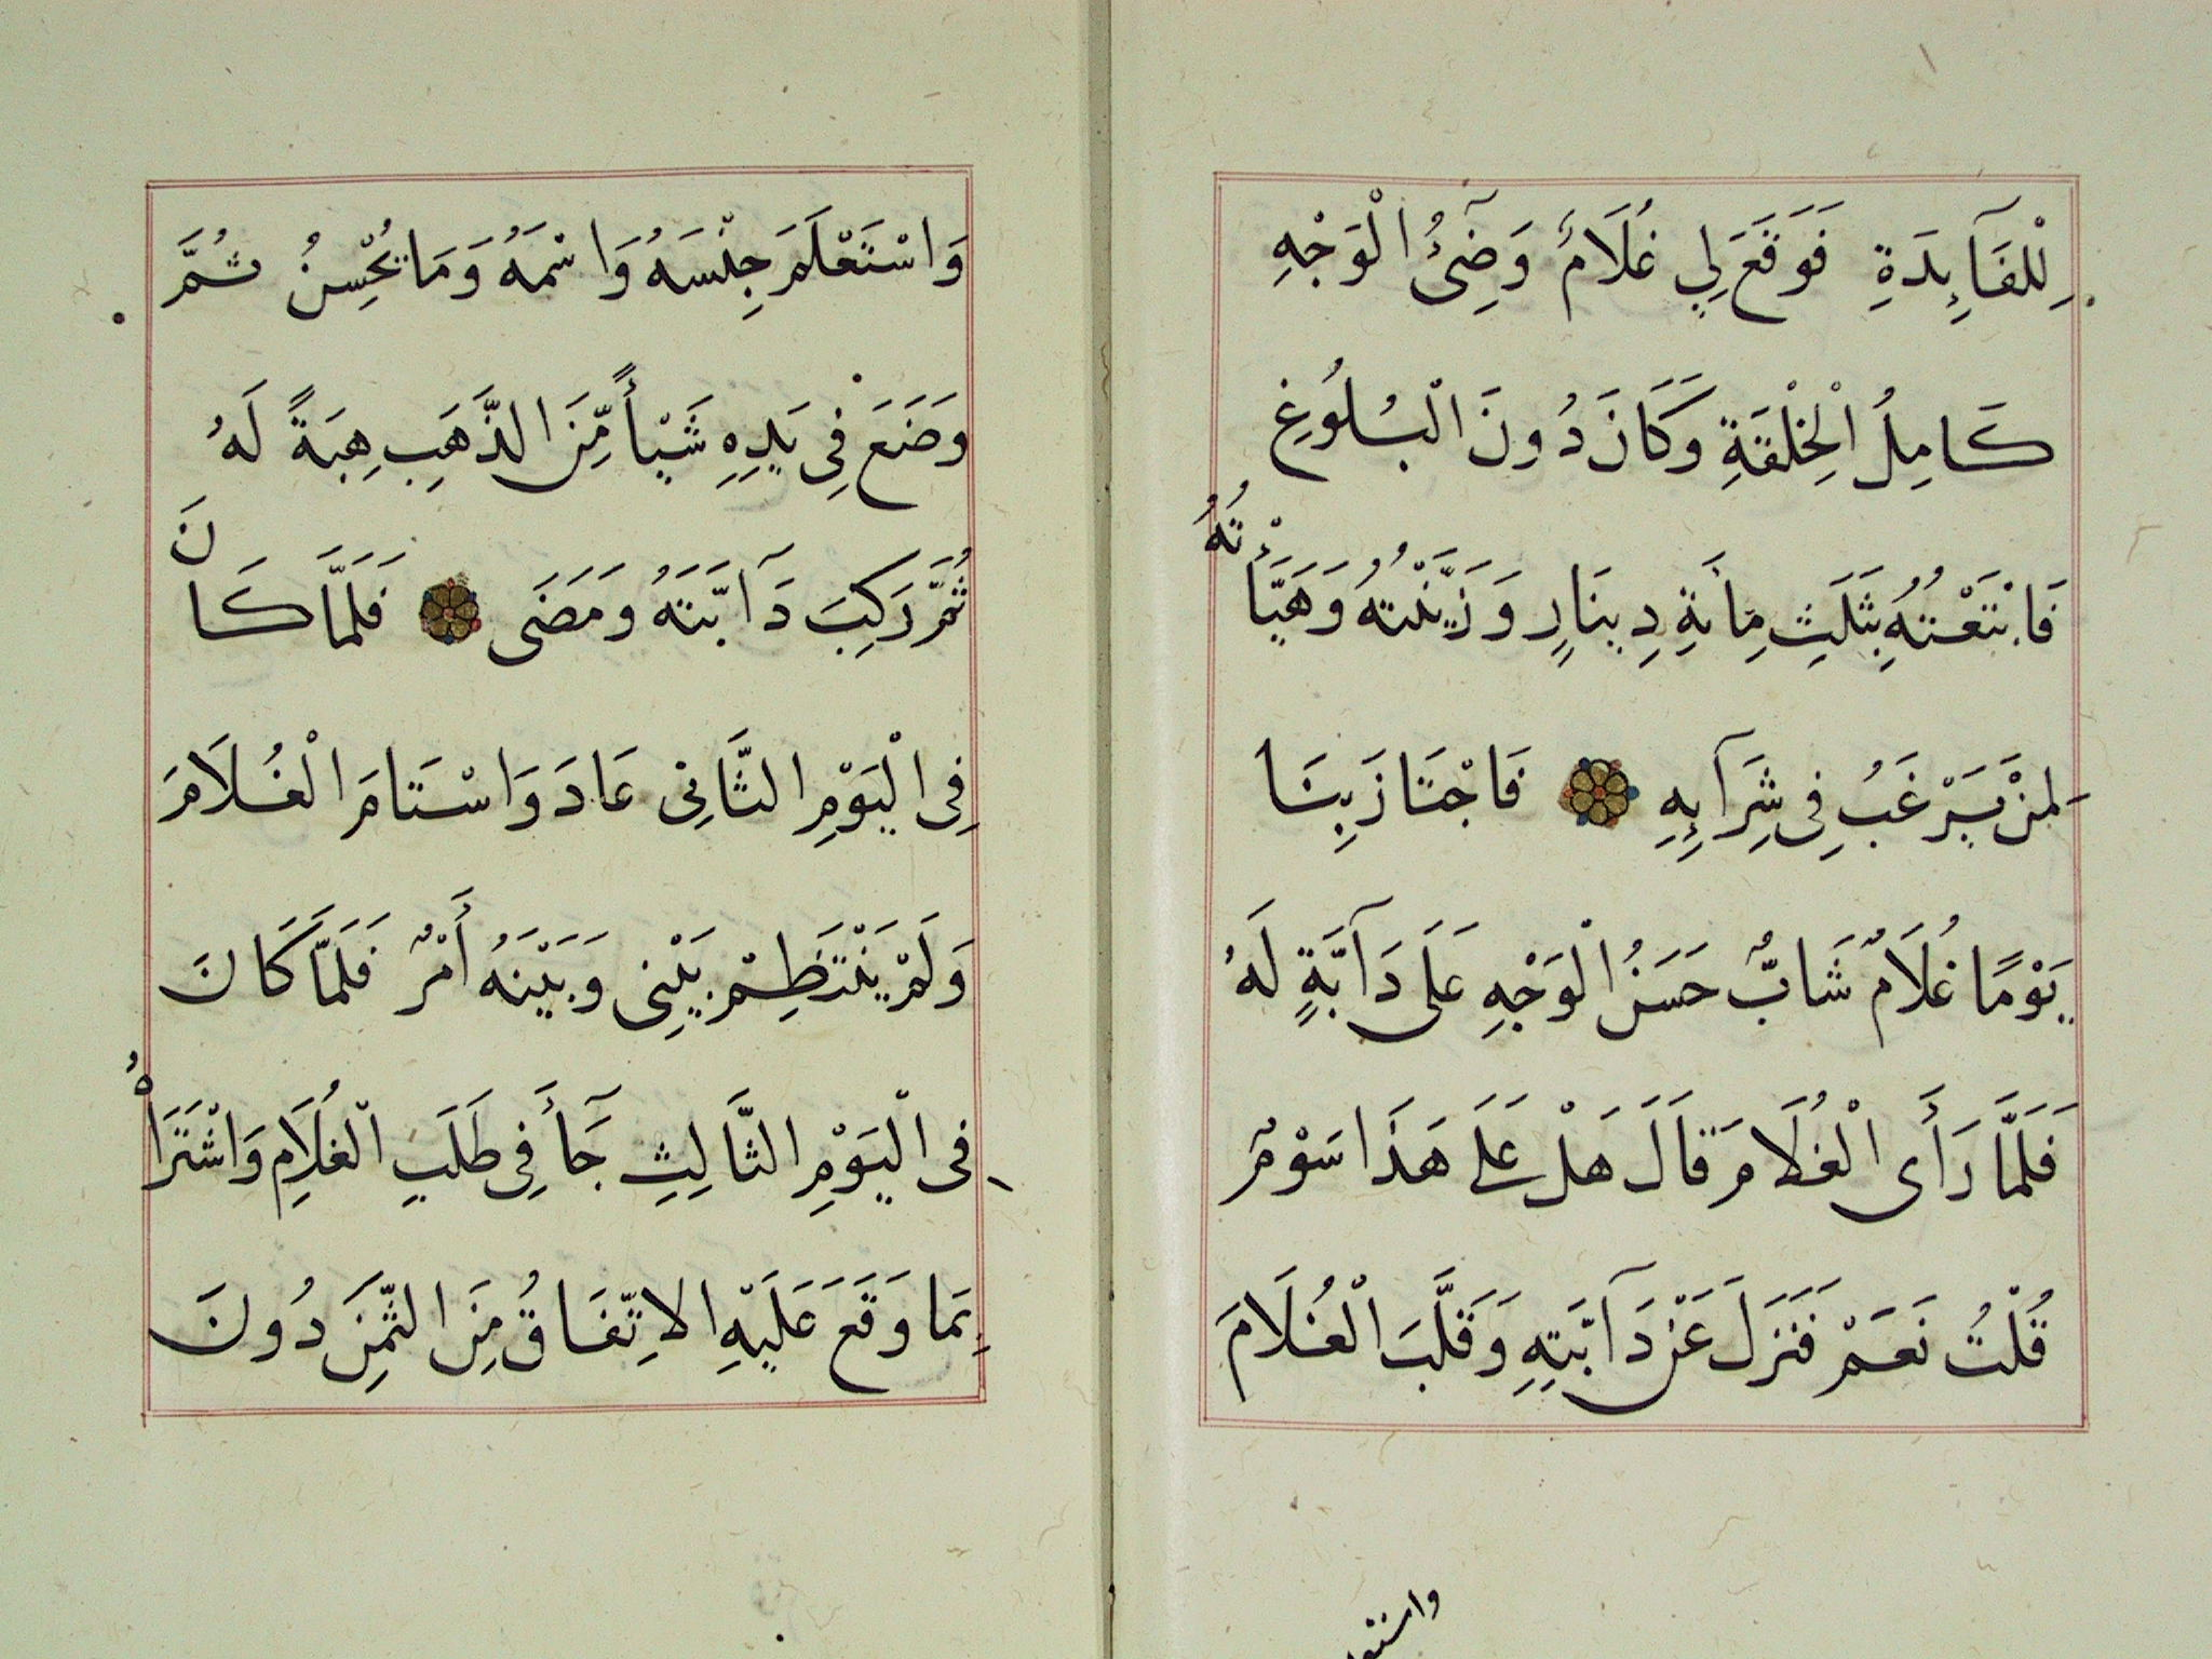 لِلْفَآيِدَةِ فَوَقَعَ لِي غُلَامٌ وَضِيُّ الْوَجْهِ
كَامِلُ الْخِلْقَةِ وَكَانَ دُونَ الْبُلُوغِ
فَابْتَعْتُهُ بِثَلَثِ مِأَيةِ دِينَارٍ وَزَيَّنْتُهُ وَهَيَّأْتُهُ
لِمَنْ يَرْغَبُ فِى شِرَآيِهِ فَاجْتَازَ بِنَا
يَوْمًا غُلَامٌ شَابٌّ حَسَنُ الْوَجْهِ عَلَى دَآبَّةٍ لَهُ
فَلَمَّا رَأَى الْغُلَامَ قَالَ هَلْ عَلَى هَذَا سَوْمٌ
قُلْتُ نَعَمْ فَنَزَلَ عَنْ دَآبَّتِهِ وَقَلَّبَ الْغُلَامَ
واستعلم
وَاسْتَعْلَمَ جِنْسَهُ وَاسْمَهُ وَمَا يُحْسِنُ ثُمَّ
وَضَعَ فِى يَدِهِ شَيْأً مِّنَ الذَّهَبِ هِبَةً لَهُ
ثُمَّ رَكِبَ دَآبَّتَهُ وَمَضَى فَلَمَّا كَانَ
فِى الْيَوْمِ الثَّانِى عَادَ وَاسْتَامَ الْغُلَامَ
وَلَمْ يَنْتَظِمْ بَيْنِى وَبَيْنَهُ أَمْرٌ فَلَمَّا كَانَ
فِى الْيَوْمِ الثَّالِثِ جَآءَ فِى طَلَبِ الْغُلَامِ وَاشْتَرَاهُ
بِمَا وَقَعَ عَلَيْهِ الاِتِّفَاقُ مِنَ الثَّمَنِ دُونَ